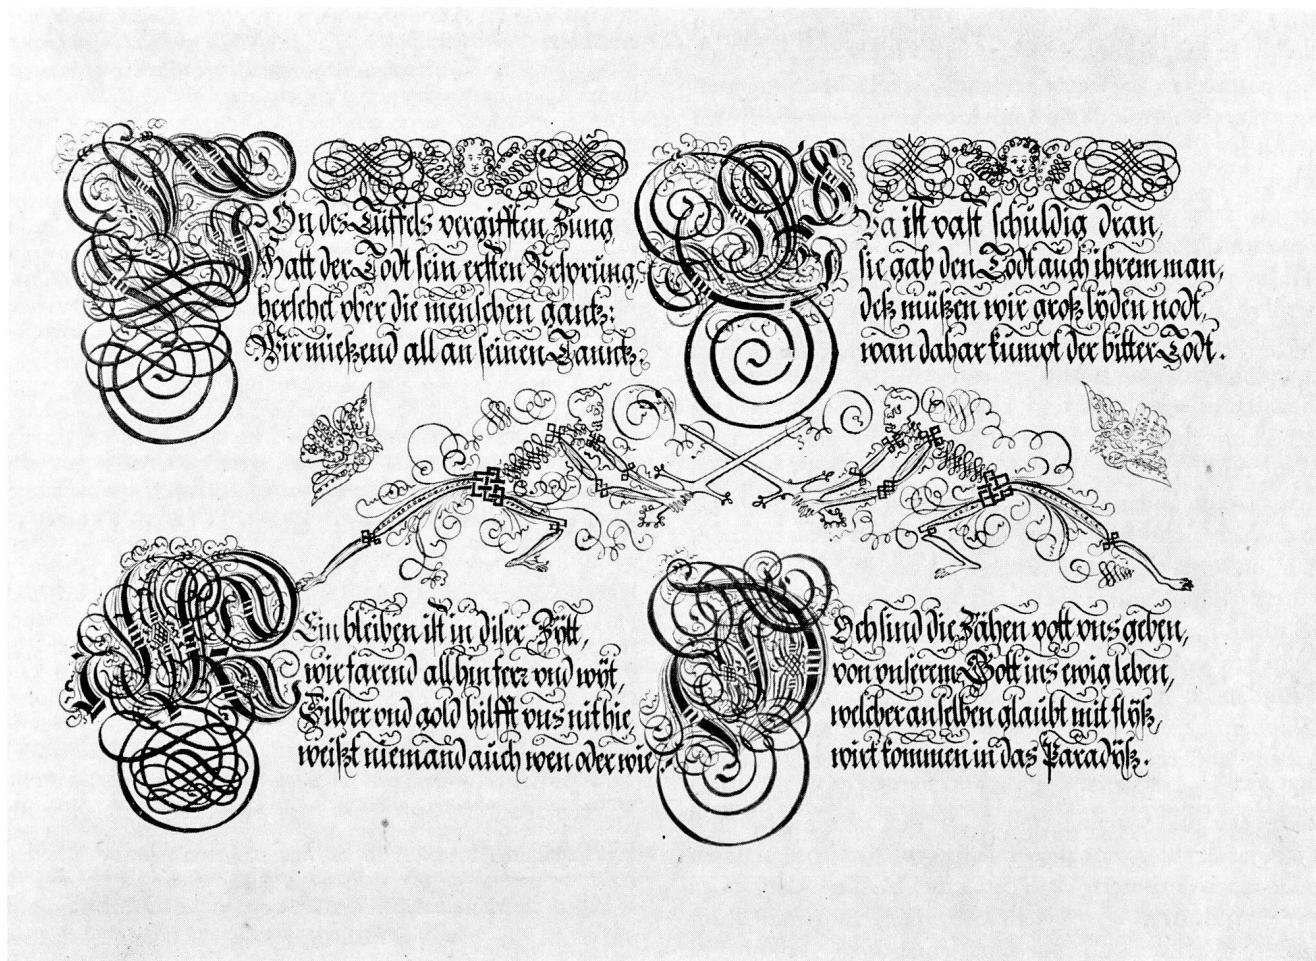 Von des Tüffels vergifften Zung
Hatt der Todt sein ersten Vrsprung,
herschet vber die menschen gantz:
Wir mießend all an seinen Tanntz.
Eva ist vast schuldig dran,
sie gab den Todt auch ihrem man,
deß müßen wir groß lÿden nodt,
wan dahar kumpt der bitter Todt.
Kein bleiben ist in diser Zÿtt,
wir farend all hin ferr vnd wÿt,
Silber vnd gold hilfft vns nit hie,
weißt niemand auch wen oder wie.
Doch sind die Zähen pott vns geben,
von vnserem Gott ins ewig leben,
welcher an selben glaubt mit flÿß,
wirt kommen in das Paradÿß.